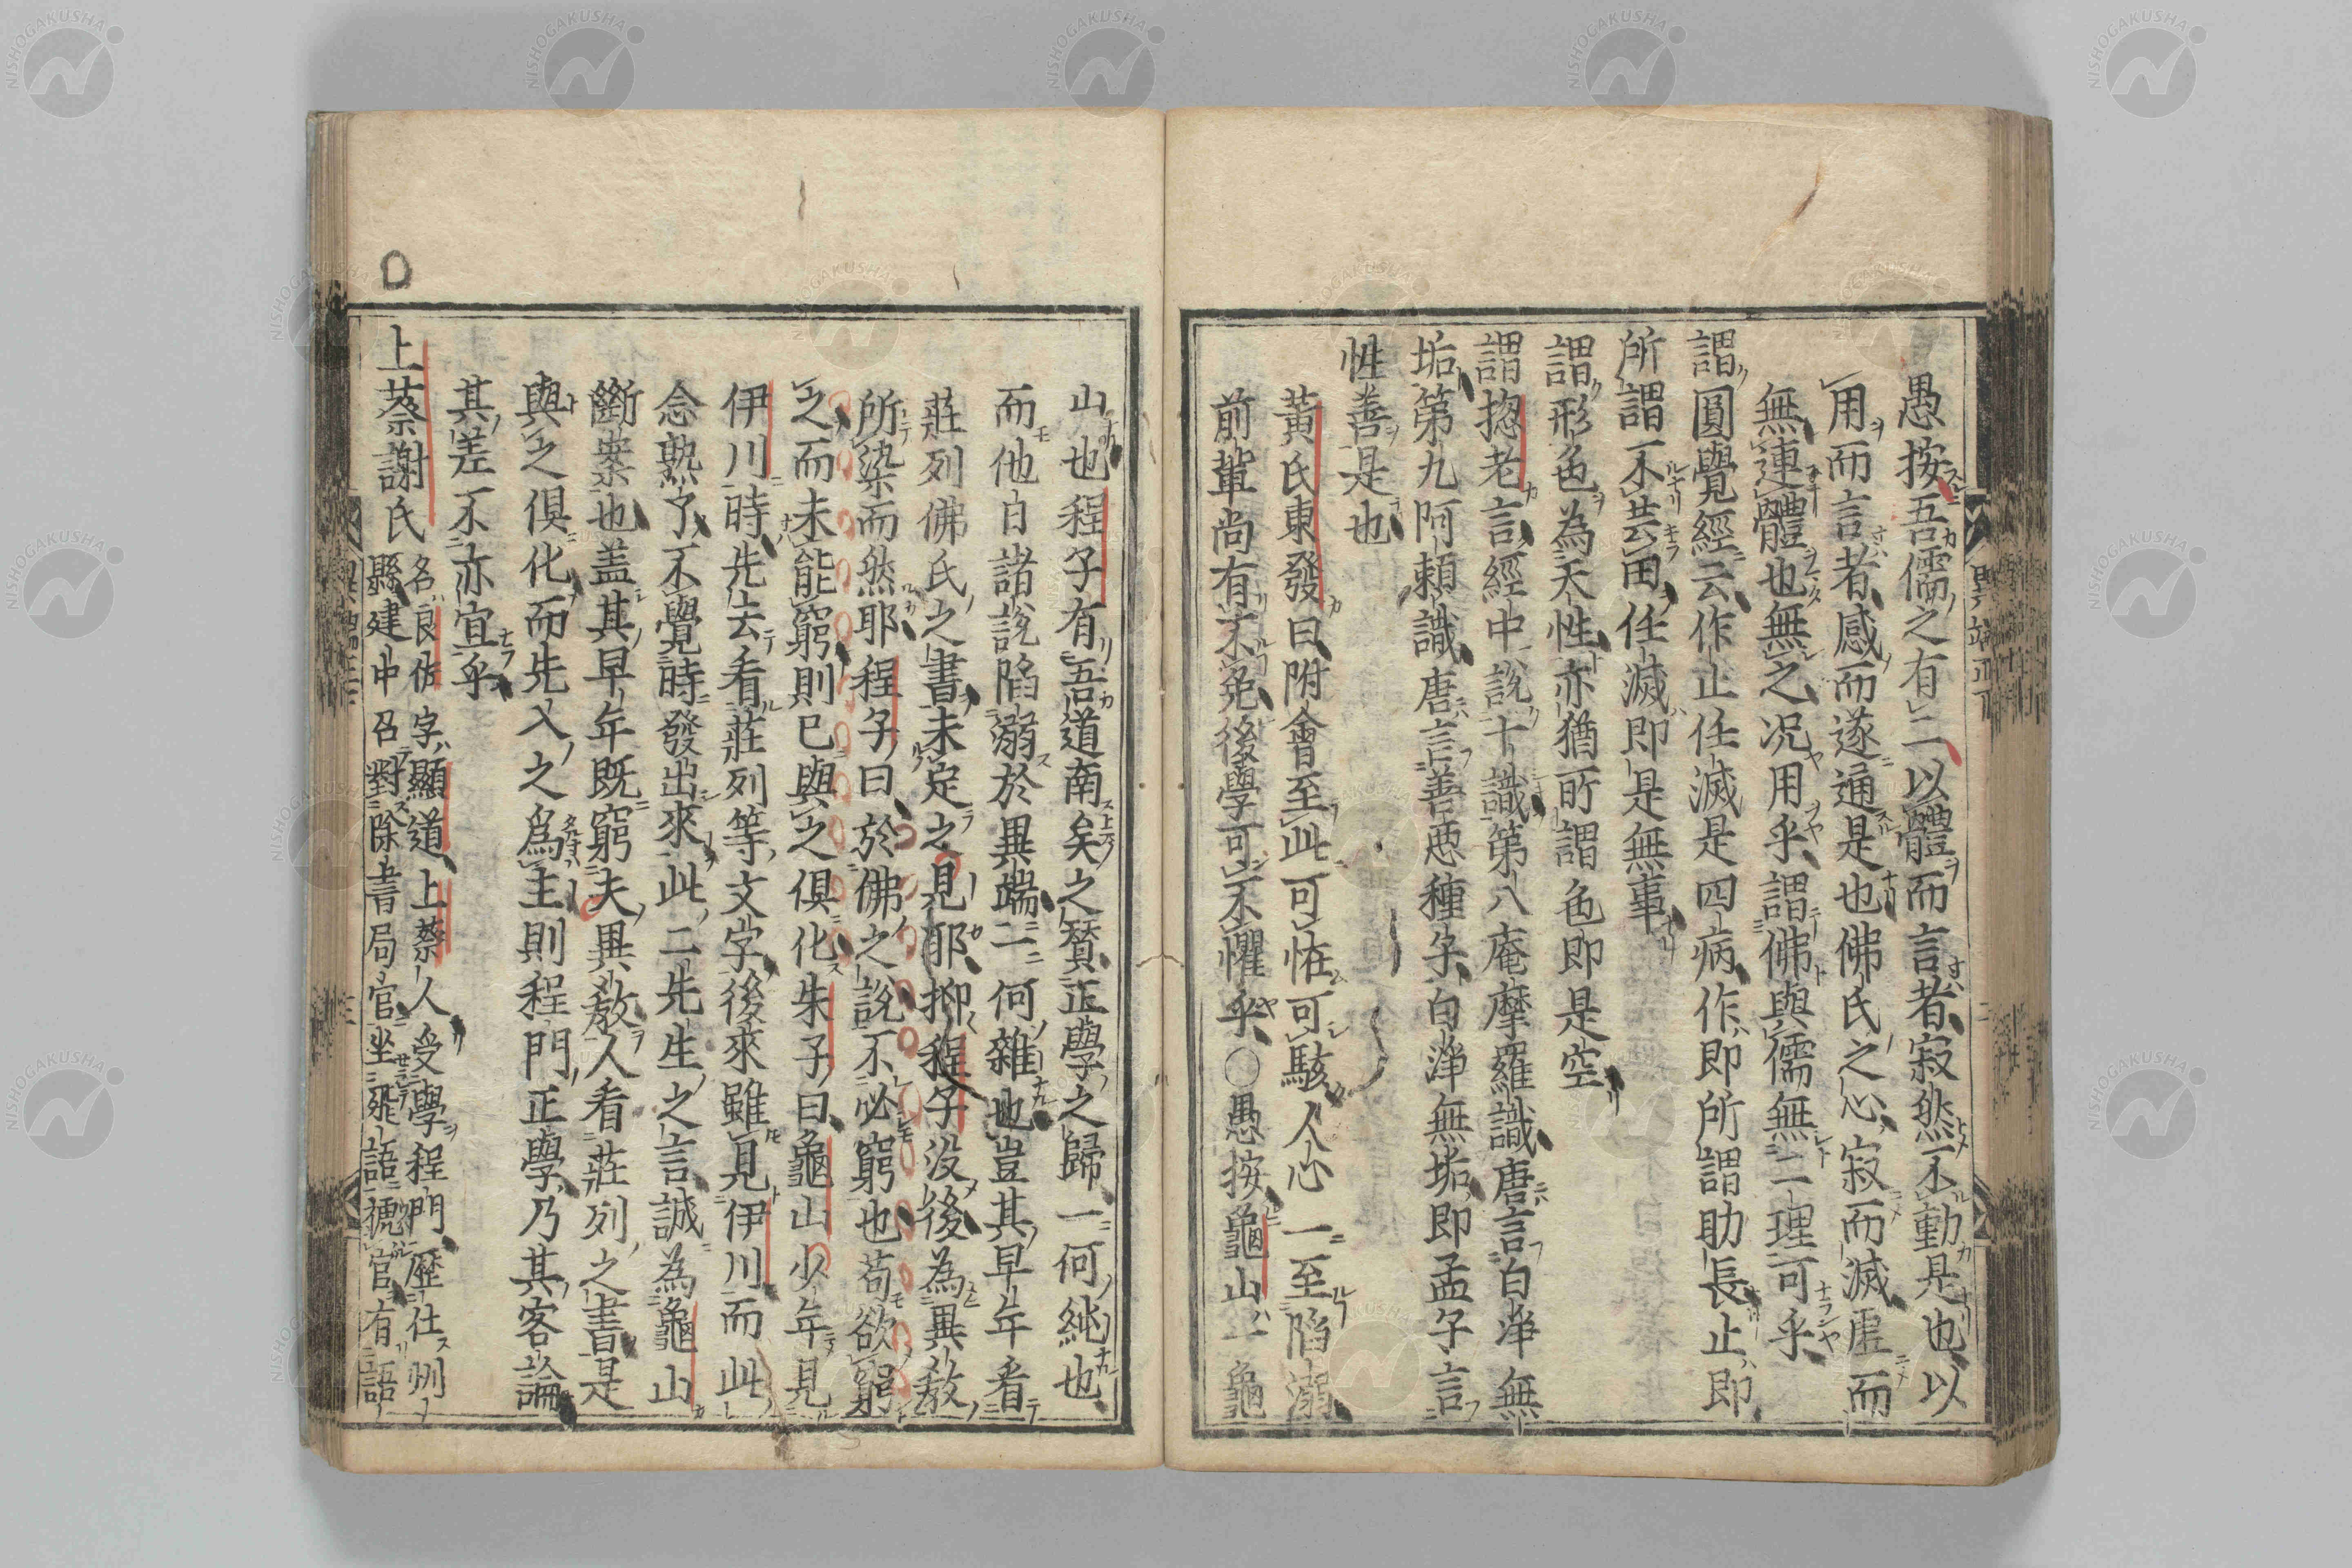 愚按吾儒之有二以體而言者寂然不動是也以
用而言者感而遂通是也佛氏之心寂而滅虛而
無連體也無之况用乎謂佛與儒無二理可乎
謂圓覺經云作止任滅是四病作即所謂助長止即
所謂不芸田任滅即是無事
謂形色為天性亦猶所謂色即是空
謂揔老言經中說十識第八庵摩羅識唐言白淨無
垢第九阿賴識唐言善惡種子白淨無垢即孟子言
性善是也
黃氏東發曰附會至此可恠可駭人心一至陷溺
前輩尚有不免後學可不懼乎○愚按龜山一龜
山也程子有吾道南矣之賛正學之歸一何純也
而他日諸說陷溺於異端二何雜也豈其早年看
莊列佛氏之書未定之見耶抑程子沒後為異教
所染而然耶程子曰於佛之說不必窮也苟欲窮
之而未能窮則已與之俱化朱子曰龜山少年見
伊川時先去看莊列等文字後來雖見伊川而此
念熟了不覺時發出來此二先生之言誠為龜山
斷案也盖其早年既窮夫異教人看莊列之書是
與之俱化而先入之為主則程門正學乃其客論
其差不亦宜乎
上蔡謝氏名良佐字顯道上蔡人受學程門歷仕州
縣建中召對除書局官坐飛語褫官有語